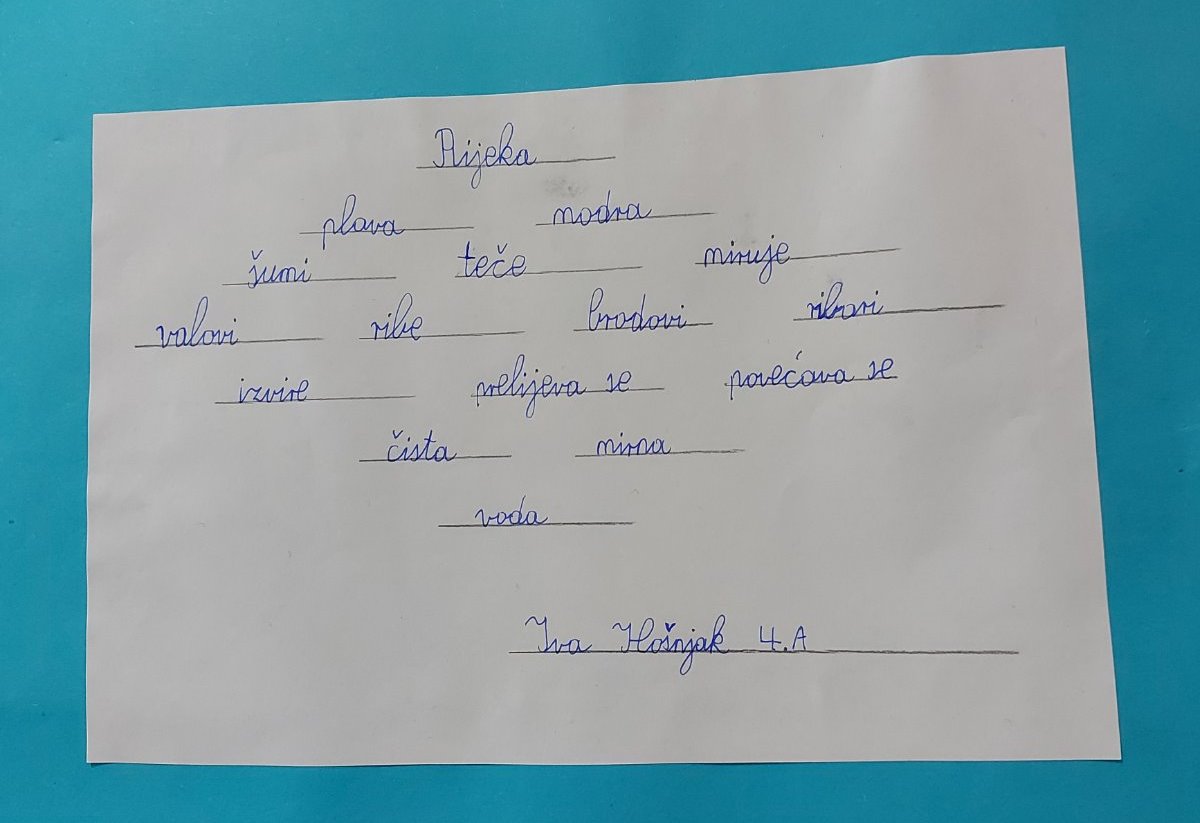 Rijeka
plava modra
šumi teče miruje
valovi ribe brodovi ribari
izvire prelijeva se povećava se
čista mirna
voda
Iva Hošnjak 4.A